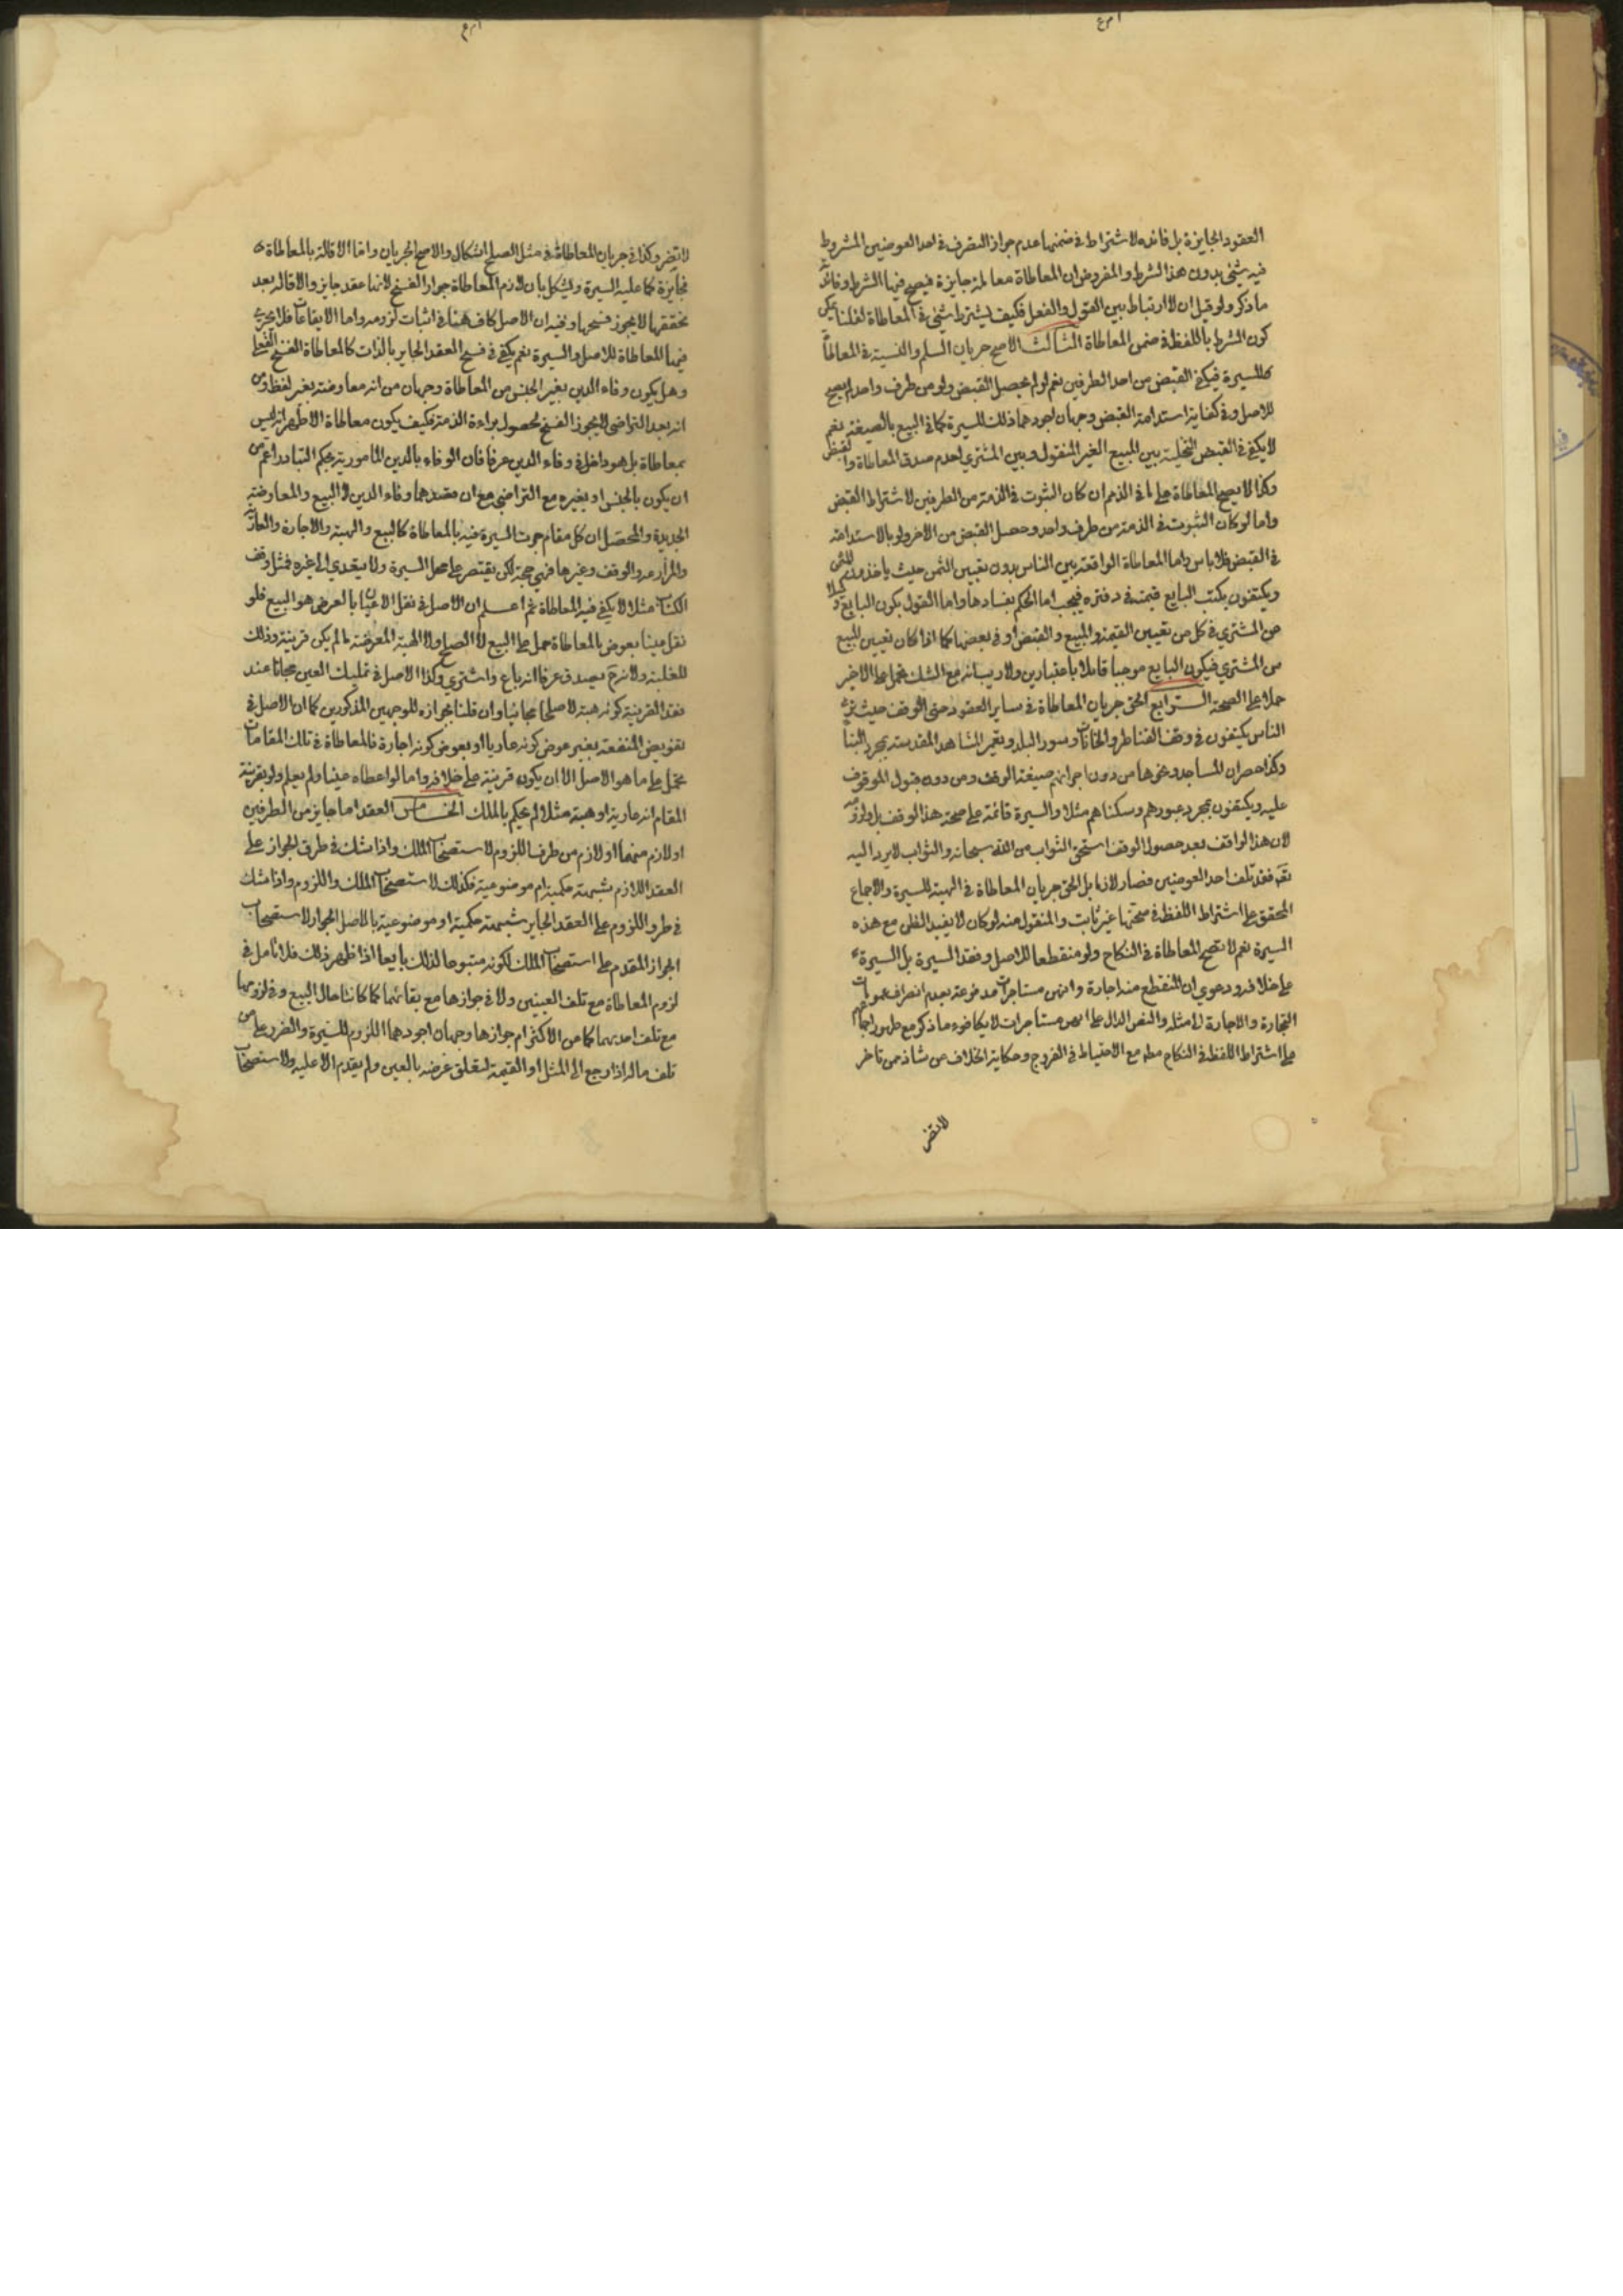 العقود الجايزة بل فائده لاشتراط في ضمنها عدم جواز التصرف في احد العوضين المشروط
فيه شئ بدون هذا الشرط والمفروض ان المعاطاة معاملة جايزة فيصح فيها الشرط
ما ذكر ولو قيل ان لا ارتباط بين القول والفعل فكيف يشترط شئ في المعاطاة لقلنا يمكن
كون الشرط باللفظ في ضمن المعاطاة الثالث الاصح جريان السلم والنسية في المعاطاة
للسيرة فيكفي القبض من احد الطرفين نعم لو لم يحصل القبض ولو من طرف واحد لم يصح
للاصل وفي كفاية استدامة القبض وجهان اجودهما ذلك للسيرة كما في البيع بالصيغة نعم
لا يكفي في القبض التخلية بين المبيع الغير المنقول وبين المشتري لعدم صدق المعاطاة والقبض
وكذا لا يصح المعاطاة على ما في الذمم ان كان الثبوت في الذمة من الطرفين لاشتراط القبض
واما لو كان الثبوت في الذمة من طرف واحد وحصل القبض من الاخر ولو بالاستدامة
في القبض فلا باس واما المعاطاة الواقعة بين الناس بدون تعيين الثمن حيث ياخذ
ويكتفون بكتب البايع قيمته في دفتره فيجب اما الحكم بفسادها واما القول بكون البايع
عن المشتري في كل من تعيين القيمة والمبيع والقبض او في بعضها كما اذا كان تعيين المبيع
من المشتري فيكون البايع موجبا قابلا باعتبارين ولا ريب انه مع الشك يحمل على الاخير
حملا على الصحة الرابع الحق جريان المعاطاة في ساير العقود حتى الوقف حيث نرى
الناس يكتفون في وقف القناطر والخانات وسور البلد وتعمير المشاهد المقدسة بمجرد البناء
وكذا حصران المساجد ونحوها من دون اجرائهم صيغة الوقف ومن دون قبول الموقوف
عليه ويكتفون بمجرد عبورهم وسكناهم مثلا والسيرة قائمة على صحة هذا الوقف بل ولزومه
لان هذا الواقف بعد حصول الوقف استحق الثواب من الله سبحانه والثواب لا يرد اليه
تعه فقد تلف احد العوضين فصار لازما بل الحق جريان المعاطاة في الهبة للسيرة والاجماع
المحقق على اشتراط اللفظ في صحتها غير ثابت والمنقول منه لو كان لا يفيد الظن مع هذه
السيرة نعم لا تصح المعاطاة في النكاح ولو منقطعا للاصل وفقد السيرة بل السيرة
على خلافه ودعوى ان المنقطع منه اجارة وانهن مستاجرات مدفوعة بعدم انصراف عمومات
التجارة والاجارة الى مثله والنص الدال على انهن مستاجرات لا يكافوء ما ذكر مع ظهور اجماعهم
على اشتراط اللفظ في النكاح مطه مع الاحتياط في الفروج وحكاية الخلاف عن شاذ ممن تاخر
لا تضر
لا تضر وكذا في جريان المعاطاة في مثل الصلح اشكال والاصح الجريان واما الاقالة بالمعاطاة
فجايزة كما عليه السيرة ويشكل بان لازم المعاطاة جواز الفسخ لانها عقد جايز والاقالة بعد
تحققها لا يجوز فسخها وفيه ان الاصل كاف هنا في اثبات لزومه واما الايقاعات فلا يجري
فيها المعاطاة للاصل والسيرة نعم يكفي في فسخ العقد الجايز بالذات كالمعاطاة الفسخ الفعلي
وهل يكون وفاء الدين بغير الجنس من المعاطاة وجهان من انه معاوضة بغير لفظ ومن
انه بعد التراضي لا يجوز الفسخ لحصول براءة الذمة فكيف يكون معاطاة الاظهر انه ليس
بمعاطاة بل هو داخل في وفاء الدين عرفا فان الوفاء بالدين المامور به بحكم التبادر اعم من
ان يكون بالجنس او بغيره مع التراضي مع ان مقصدهما وفاء الدين لا البيع والمعاوضة
الجديدة والمحصل ان كل مقام جرت السيرة فيه بالمعاطاة كالبيع والهبة والاجارة والعارية
والمزارعة والوقف وغيرها فهي حجة لكن يقتصر على محل السيرة ولا يتعدي الى غيره فمثل وقف
الكتاب مثلا لا يكفي فيه المعاطاة ثم اعلم ان الاصل في نقل الاعيان بالعوض هو البيع فلو
نقل عينا بعوض بالمعاطاة حمل على البيع لا الصلح ولا الهبة المعوضة ما لم يكن قرينة وذلك
للغلبة ولانه ح يصدق عرفا انه باع واشتري وكذا الاصل في تمليك العين مجانا عند
فقد القرينة كونه هبة لا صلحا مجانيا وان قلنا بجوازه للوجهين المذكورين كما ان الاصل في
تفويض المنفعة بغير عوض كونه عاريا او بعوض كونه اجارة فالمعاطاة في تلك المقامات
تحمل على ما هو الاصل الا ان يكون قرينة على خلافه واما لو اعطاه عينا ولم يعلم ولو بقرينة
المقام انه عارية او هبة مثلا لم يحكم بالملك الخامس العقد اما جايز من الطرفين
او لازم منهما او لازم من طرف اللزوم لاستصحاب الملك واذا شك في طرق الجواز على
العقد اللازم بشبهة حكمية ام موضوعية فكذلك لاستصحاب الملك واللزوم واذا شك
في طرو اللزوم على العقد الجايز بشبهة حكمية او موضوعية بالاصل الجواز لاستصحاب
الجواز المقدم على استصحاب الملك لكونه متبوعا لذلك بايعا اذا ظهر ذلك فلا تامل في
لزوم المعاطاة مع تلف العينين ولا في جوازها مع بقائهما كما كانتا حال البيع وفي لزومها
مع تلف احدهما كما عن الاكثر ام جوازها وجهان اجودهما اللزوم للسيرة والضرر على من
تلف ماله اذا رجع الى المثل او القيمة لتعلق غرضه بالعين ولم يقدم الا عليه ولاستصحاب